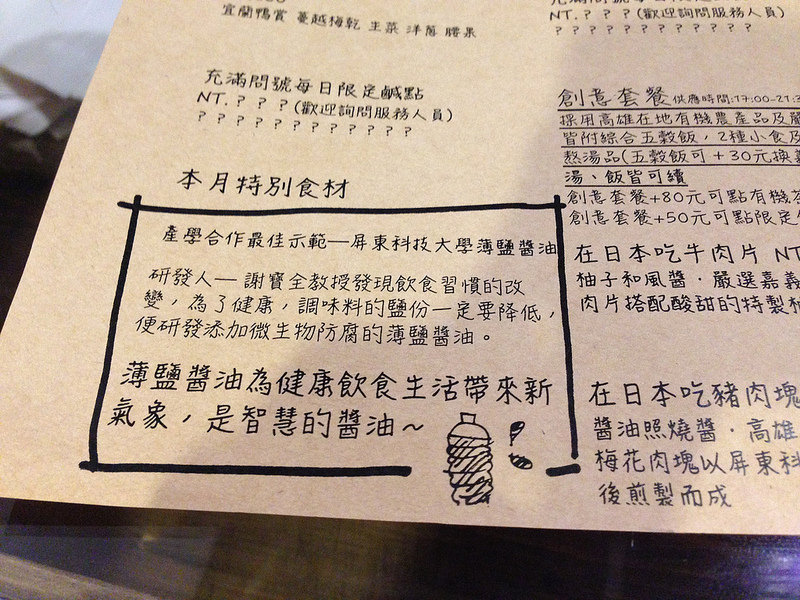 宜蘭鴨賞 蔓越梅乾 生菜 洋蔥 腰果
充滿問號每日限定鹹點
NT.？？？(歡迎詢問服務人員)
？？？？？？？？？？？？
本月特別食材
產學合作最佳示範—屏東科技大學薄鹽醬油
研發人— 謝寶全教授發現飲食習慣的改
變，為了健康，調味料的鹽份一定要降低，
便研發添加微生物防腐的薄鹽醬油。
薄鹽醬油為健康飲食生活帶來新
氣象，是智慧的醬油~
NT.？？？(歡迎詢問服務人員)
？？？？？？？？？？？？
創意套餐 供應時間:17:00-21:3
採用高雄在地有機農產品及嚴
皆附綜合五穀飯，2種小食及
熬湯品(五穀飯可＋30元換
湯、飯皆可續
創意套餐+80元可點有機茶
創意套餐+50元可點限定
在日本吃牛肉片 NT
柚子和風醬．嚴選嘉義
肉片搭配酸甜的特製
在日本吃豬肉塊
醬油照燒醬．高雄
梅花肉塊以屏東科
後煎製而成